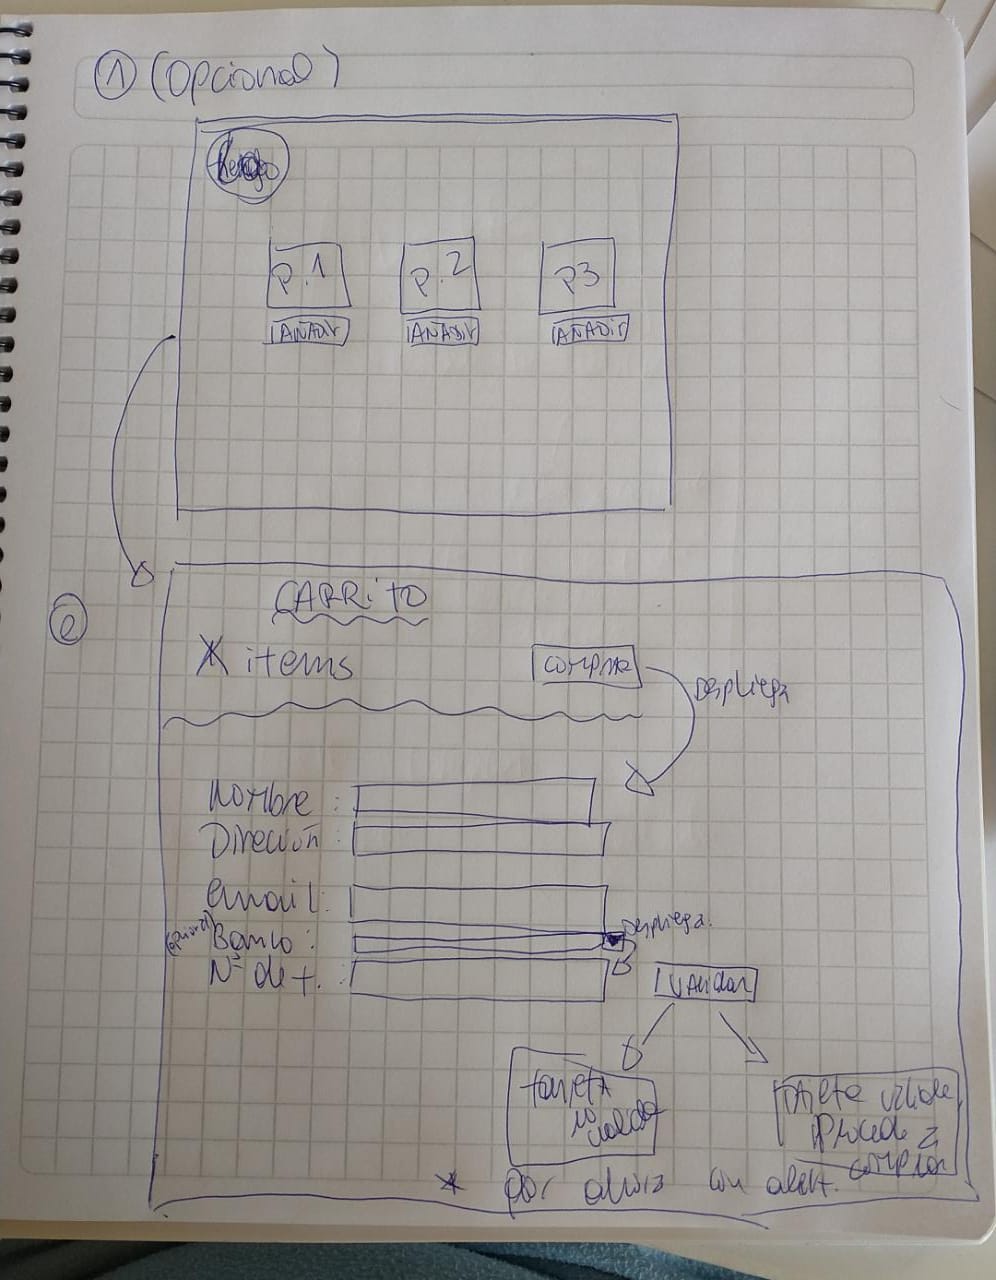 ① (opcional)
P.1
P.2
P3
AÑADIR
AÑADIR
AÑADIR
②
CARRITO
* items
COMPRAR
DESPLIEGA
Nombre :
Dirección :
email :
(opcional) Banco :
DESPLIEGA.
Nº de t. :
VALIDAR
tarjeta
no
valida
tarjeta valida
Procede a
comprar
* por ahora con alert.